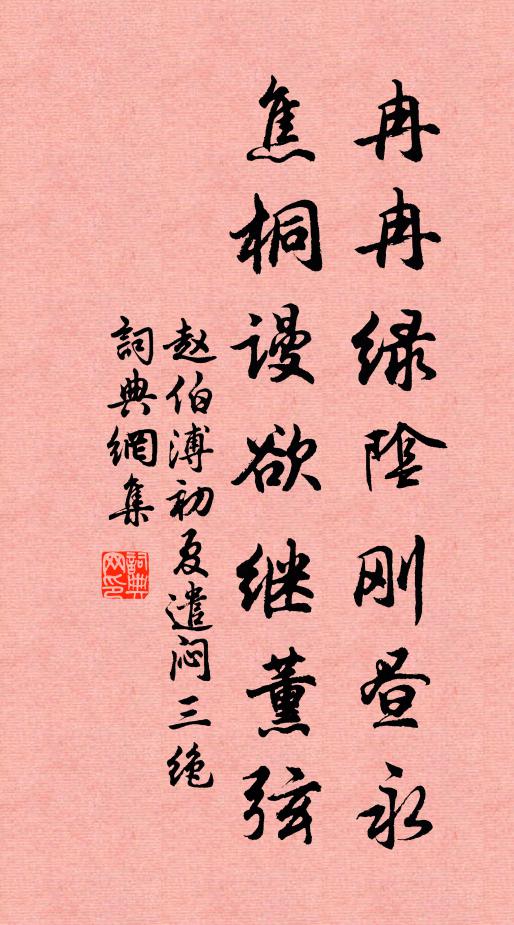 冉冉绿陰刚昼永
焦桐谩欲继薰弦
赵伯溥初夏遣闷三绝
詞典網集
詞典网印